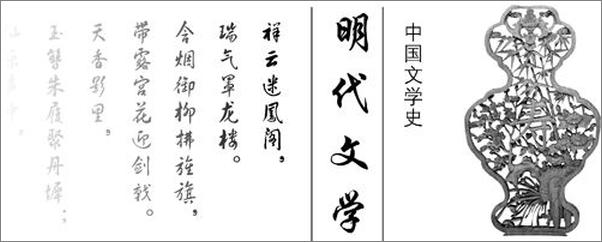 中国文学史
明代文学
祥云迷凤阁，
瑞气罩龙楼。
含烟御柳拂旌旗，
带露宫花迎剑戟。
天香影里，
玉簪朱履聚丹墀；
乐声中，